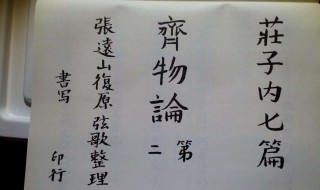 莊子内七篇
齊物論
第二
張遠山復原 弦歌整理
書写 印行